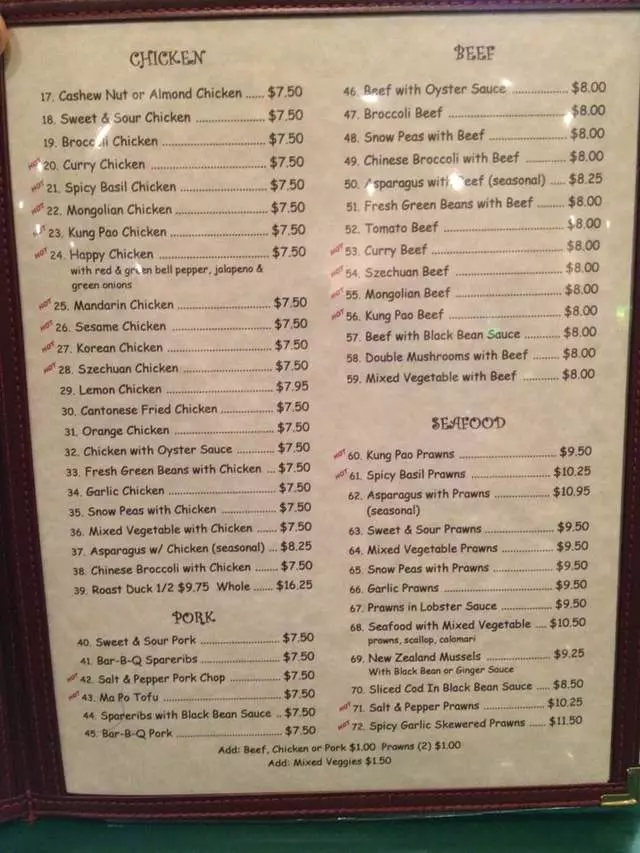 CHICKEN
17. Cashew Nut or Almond Chicken ...... $7.50
18. Sweet & Sour Chicken ...... $7.50
19. Broccoli Chicken ...... $7.50
HOT 20. Curry Chicken ...... $7.50
HOT 21. Spicy Basil Chicken ...... $7.50
HOT 22. Mongolian Chicken ...... $7.50
HOT 23. Kung Pao Chicken ...... $7.50
HOT 24. Happy Chicken ...... $7.50
with red & green bell pepper, jalapeno &
green onions
HOT 25. Mandarin Chicken ...... $7.50
HOT 26. Sesame Chicken ...... $7.50
HOT 27. Korean Chicken ...... $7.50
HOT 28. Szechuan Chicken ...... $7.50
29. Lemon Chicken ...... $7.95
30. Cantonese Fried Chicken ...... $7.50
31. Orange Chicken ...... $7.50
32. Chicken with Oyster Sauce ...... $7.50
33. Fresh Green Beans with Chicken ... $7.50
34. Garlic Chicken ...... $7.50
35. Snow Peas with Chicken ...... $7.50
36. Mixed Vegetable with Chicken ...... $7.50
37. Asparagus w/ Chicken (seasonal) ... $8.25
38. Chinese Broccoli with Chicken ...... $7.50
39. Roast Duck 1/2 $9.75 Whole ...... $16.25
PORK
40. Sweet & Sour Pork ...... $7.50
41. Bar-B-Q Spareribs ...... $7.50
HOT 42. Salt & Pepper Pork Chop ...... $7.50
HOT 43. Ma Po Tofu ...... $7.50
44. Spareribs with Black Bean Sauce .. $7.50
45. Bar-B-Q Pork ...... $7.50
BEEF
46. Beef with Oyster Sauce ...... $8.00
47. Broccoli Beef ...... $8.00
48. Snow Peas with Beef ...... $8.00
49. Chinese Broccoli with Beef ...... $8.00
50. Asparagus with Beef (seasonal) .... $8.25
51. Fresh Green Beans with Beef ...... $8.00
52. Tomato Beef ...... $8.00
HOT 53. Curry Beef ...... $8.00
HOT 54. Szechuan Beef ...... $8.00
HOT 55. Mongolian Beef ...... $8.00
HOT 56. Kung Pao Beef ...... $8.00
57. Beef with Black Bean Sauce ...... $8.00
58. Double Mushrooms with Beef ...... $8.00
59. Mixed Vegetable with Beef ...... $8.00
SEAFOOD
HOT 60. Kung Pao Prawns ...... $9.50
HOT 61. Spicy Basil Prawns ...... $10.25
62. Asparagus with Prawns ...... $10.95
(seasonal)
63. Sweet & Sour Prawns ...... $9.50
64. Mixed Vegetable Prawns ...... $9.50
65. Snow Peas with Prawns ...... $9.50
66. Garlic Prawns ...... $9.50
67. Prawns in Lobster Sauce ...... $9.50
68. Seafood with Mixed Vegetable .... $10.50
prawns, scallop, calamari
69. New Zealand Mussels ...... $9.25
With Black Bean or Ginger Sauce
70. Sliced Cod In Black Bean Sauce .... $8.50
HOT 71. Salt & Pepper Prawns ...... $10.25
HOT 72. Spicy Garlic Skewered Prawns ..... $11.50
Add: Beef, Chicken or Pork $1.00 Prawns (2) $1.00
Add: Mixed Veggies $1.50